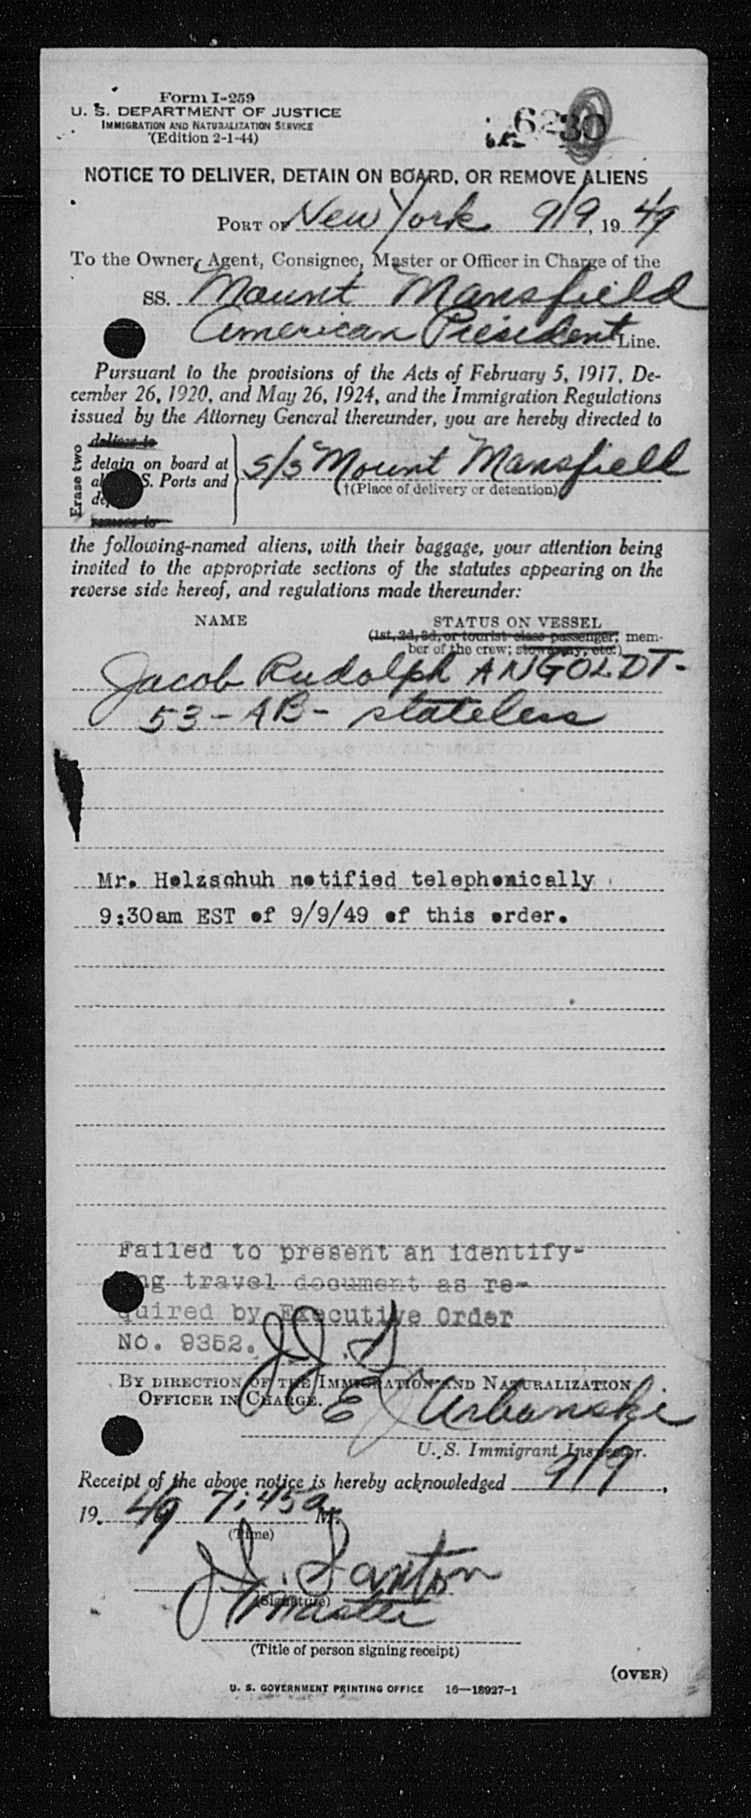 Form I-259
U. S. DEPARTMENT OF JUSTICE
IMMIGRATION AND NATURALIZATION SERVICE
(Edition 2-1-44)
NOTICE TO DELIVER, DETAIN ON BOARD, OR REMOVE ALIENS
PORT OF New York 9/9, 19 49
To the Owner, Agent, Consignee, Master or Officer in Charge of the
SS. Mount Mansfield
American President Line.
Pursuant to the provisions of the Acts of February 5, 1917, De-
cember 26, 1920, and May 26, 1924, and the Immigration Regulations
issued by the Attorney General thereunder, you are hereby directed to
Erase two
deliver to
detain on board at
S. Ports and
remove to
S/S Mount Mansfield
†(Place of delivery or detention)
the following-named aliens, with their baggage, your attention being
invited to the appropriate sections of the statutes appearing on the
reverse side hereof, and regulations made thereunder:
NAME STATUS ON VESSEL
(1st, 2d, 3d, or tourist class passenger; mem-
ber of the crew; stowaway, etc.)
Jacob Rudolph ANGOLDT-
53-AB- stateless
Mr. Holzschuh notified telephonically
9:30am EST of 9/9/49 of this order.
Failed to present an identify-
ng travel document as re-
quired by Executive Order
No. 9352.
BY DIRECTION OF THE IMMIGRATION AND NATURALIZATION
OFFICER IN CHARGE.
E J Urbanski
U. S. Immigrant Inspector.
Receipt of the above notice is hereby acknowledged 9/9,
19 49 7:45a M.
(Time)
(Signature)
Master
(Title of person signing receipt)
(OVER)
U. S. GOVERNMENT PRINTING OFFICE 16—18927-1